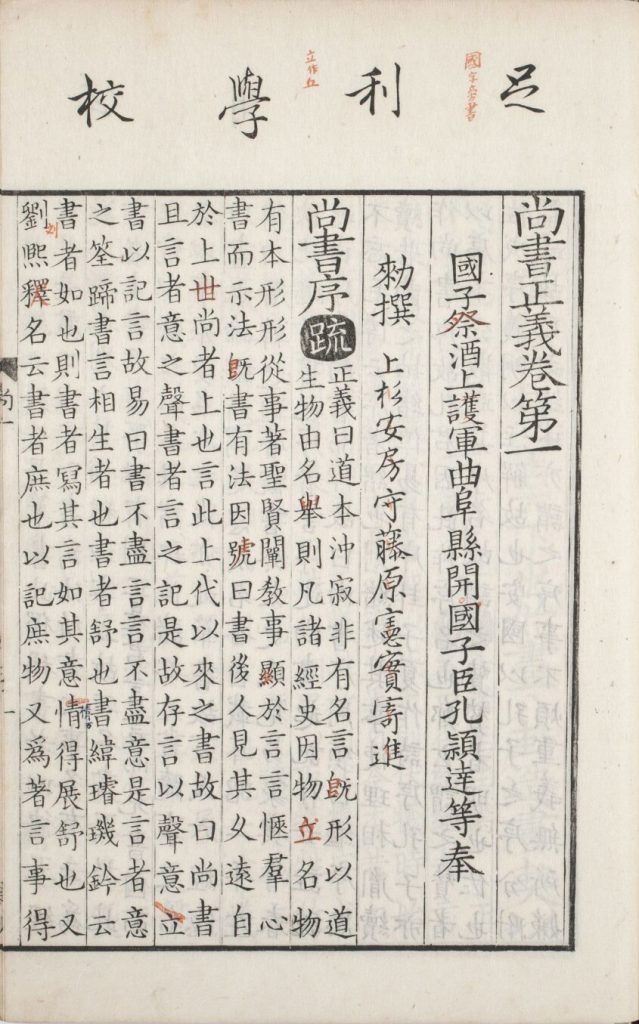 足利學校
尚書正義卷第一
國子祭酒上護軍曲阜縣開國子臣孔穎達等奉
勑撰 上杉安房守藤原憲實寄進
尚書序 疏 正義曰道本沖寂非有名言既形以道
生物由名舉則凡諸經史因物立名物
有本形形從事著聖賢闡教事顯於言言愜羣心
書而示法既書有法因號曰書後人見其久遠自
於上世尚者上也言此上代以來之書故曰尚書
且言者意之聲書者言之記是故存言以聲意立
書以記言故易曰書不盡言言不盡意是言者意
之筌蹄書言相生者也書者舒也書緯璿璣鈐云
書者如也則書者寫其言如其意情得展舒也又
劉熙釋名云書者庶也以記庶物又爲著言事得